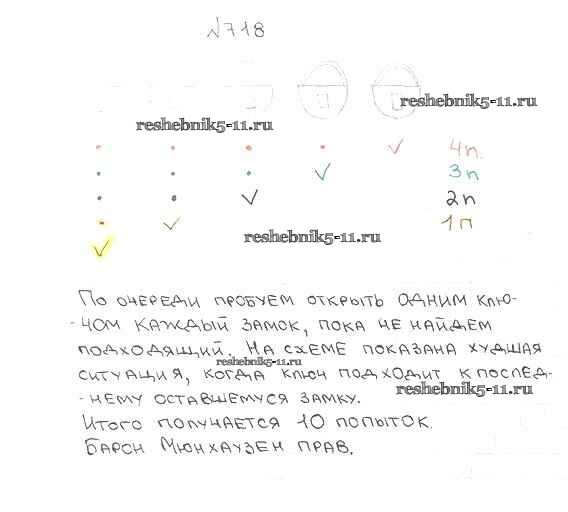 №718
reshebnik5-11.ru
reshebnik5-11.ru
4п.
3п
2п
1п
reshebnik5-11.ru
По очереди пробуем открыть одним клю-
-чом каждый замок, пока не найдем
подходящий. На схеме показана худшая
reshebnik5-11.ru
ситуация, когда ключ подходит к послед-
reshebnik5-11.ru
-нему оставшемуся замку.
Итого получается 10 попыток.
Барон Мюнхаузен прав.